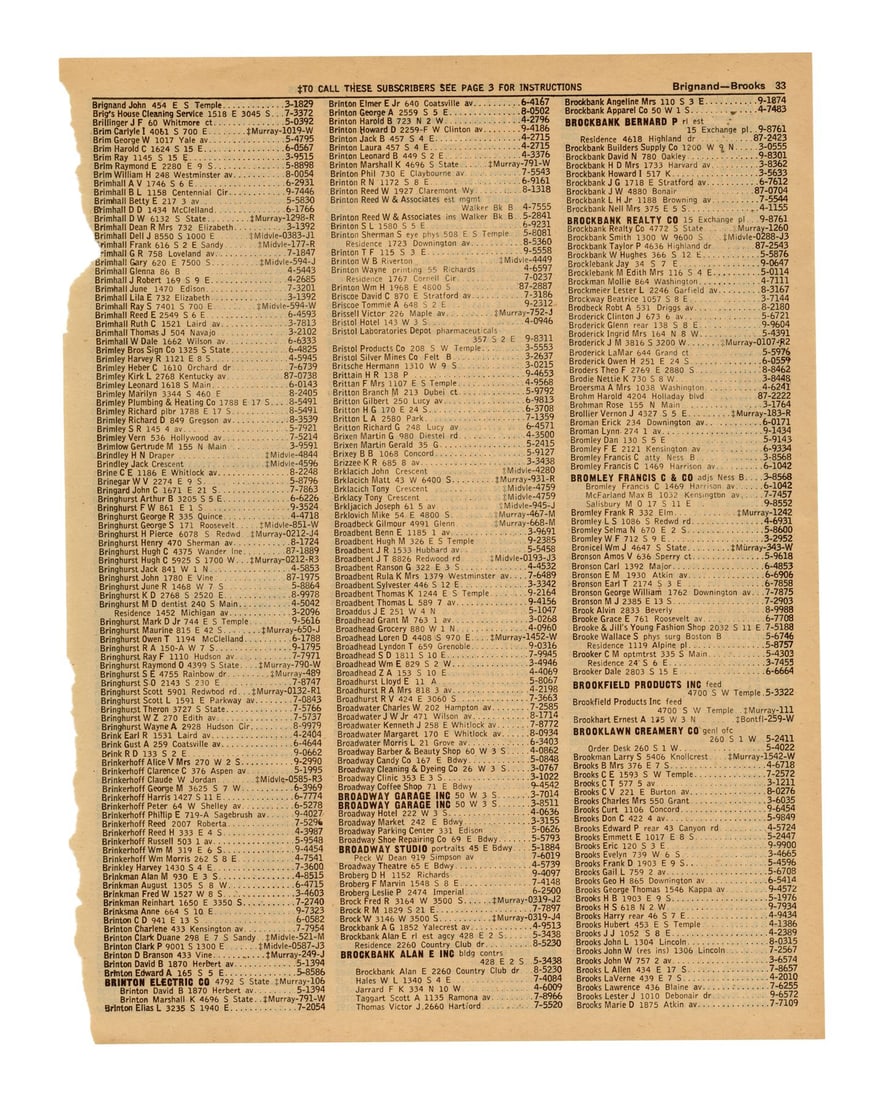 ‡TO CALL THESE SUBSCRIBERS SEE PAGE 3 FOR INSTRUCTIONS
Brignand—Brooks 33
Brignand John 454 E S Temple 3-1829
Brig's House Cleaning Service 1518 E 3045 S 7-3372
Brillinger J F 60 Whitmore ct 5-0392
Brim Carlyle I 4061 S 700 E ‡Murray-1019-W
Brim George W 1017 Yale av 5-4795
Brim Harold C 1624 S 15 E 6-0567
Brim Ray 1145 S 15 E 3-9515
Brim Raymond E 2280 E 9 S 5-8898
Brim William H 248 Westminster av 8-0054
Brimhall A V 1746 S 6 E 6-2931
Brimhall B L 1158 Centennial Cir 9-7446
Brimhall Betty E 217 3 av 5-5830
Brimhall D D 1434 McClelland 6-1766
Brimhall D W 6132 S State ‡Murray-1298-R
Brimhall Dean R Mrs 732 Elizabeth 3-1392
Brimhall Dell J 8550 S 1000 E ‡Midvle-0383-J1
Brimhall Frank 616 S 2 E Sandy ‡Midvle-177-R
Brimhall G R 758 Loveland av 7-1847
Brimhall Gary 620 E 7500 S ‡Midvle-594-J
Brimhall Glenna 86 B 4-5443
Brimhall J Robert 169 S 9 E 4-2685
Brimhall June 1470 Edison 7-3201
Brimhall Lila E 732 Elizabeth 3-1392
Brimhall Ray S 7401 S 700 E ‡Midvle-594-W
Brimhall Reed E 2549 S 6 E 6-4593
Brimhall Ruth C 1521 Laird av 3-7813
Brimhall Thomas J 504 Navajo 3-2102
Brimhall W Dale 1662 Wilson av 6-6333
Brimley Bros Sign Co 1325 S State 6-4825
Brimley Harvey R 1121 E 8 S 4-5945
Brimley Heber C 1610 Orchard dr 7-6739
Brimley Kirk L 2768 Kentucky av 87-0738
Brimley Leonard 1618 S Main 6-0143
Brimley Marilyn 3344 S 460 E 8-2405
Brimley Plumbing & Heating Co 1788 E 17 S 8-5491
Brimley Richard plbr 1788 E 17 S 8-5491
Brimley Richard D 849 Gregson av 8-3539
Brimley S R 145 4 av 5-7921
Brimley Vern 536 Hollywood av 7-5214
Brimlow Gertrude M 155 N Main 3-9591
Brindley H N Draper ‡Midvle-4844
Brindley Jack Crescent ‡Midvle-4596
Brine C E 1186 E Whitlock av 8-2248
Brinegar W V 2274 E 9 S 5-8796
Bringard John C 1671 E 21 S 7-7863
Bringhurst Arthur B 3205 S 5 E 6-6226
Bringhurst F W 861 E 1 S 9-3524
Bringhurst George R 335 Quince 4-4718
Bringhurst George S 171 Roosevelt ‡Midvle-851-W
Bringhurst H Pierce 6078 S Redwd ‡Murray-0212-J4
Bringhurst Henry 470 Sherman av 8-1724
Bringhurst Hugh C 4375 Wander lne 87-1889
Bringhurst Hugh C 5925 S 1700 W ‡Murray-0212-R3
Bringhurst Jack 843 1 av 4-5853
Bringhurst John 1780 E Vine 87-1975
Bringhurst June R 1468 W 7 S 5-8864
Bringhurst K D 2768 S 2520 E 8-9978
Bringhurst M D dentist 240 S Main 4-5042
Residence 1452 Michigan av 3-2096
Bringhurst Mark D Jr 744 E S Temple 9-5616
Bringhurst Maurine 815 E 42 S ‡Murray-650-J
Bringhurst Owen T 1194 McClelland 6-1788
Bringhurst R A 150-A W 7 S 9-1795
Bringhurst Ray F 1110 Hudson av 7-7971
Bringhurst Raymond O 4399 S State ‡Murray-790-W
Bringhurst S E 4755 Rainbow dr ‡Murray-489
Bringhurst S O 2143 S 230 E 7-8747
Bringhurst Scott 5901 Redwood rd ‡Murray-0132-R1
Bringhurst Scott L 1591 E Parkway av 7-0843
Bringhurst Theron 3727 S State 7-5766
Bringhurst W Z 270 Edith av 7-5737
Bringhurst Wayne A 2928 Hudson Cir 8-9979
Brink Earl R 1531 Laird av 4-2404
Brink Gust A 259 Coatsville av 6-4644
Brink R D 133 S 2 E 9-0662
Brinkerhoff Alice V Mrs 270 W 2 S 9-2990
Brinkerhoff Clarence C 376 Aspen av 5-1995
Brinkerhoff Claude W Jordan ‡Midvle-0585-R3
Brinkerhoff George M 3625 S 7 W 6-3969
Brinkerhoff Harris 1427 S 11 E 6-7774
Brinkerhoff Peter 64 W Shelley av 6-5278
Brinkerhoff Phillip E 719-A Sagebrush av 9-4027
Brinkerhoff Reed 2007 Roberta 7-5296
Brinkerhoff Reed H 333 E 4 S 4-3987
Brinkerhoff Russell 503 1 av 5-9548
Brinkerhoff Wm M 319 E 6 S 9-4454
Brinkerhoff Wm Morris 262 S 8 E 4-7541
Brinkley Harvey 1430 S 4 E 7-3600
Brinkman Alan M 930 E 3 S 4-8515
Brinkman August 1305 S 8 W 6-4715
Brinkman Fred W 1527 W 8 S 3-4603
Brinkman Reinhart 1650 E 3350 S 7-2740
Brinksma Anne 664 S 10 E 9-7323
Brinton C D 941 E 13 S 6-0582
Brinton Charlene 433 Kensington av 7-7954
Brinton Clark Duane 298 E 7 S Sandy ‡Midvle-521-M
Brinton Clark P 9001 S 1300 E ‡Midvle-0587-J3
Brinton D Branson 433 Vine ‡Murray-249-J
Brinton David B 1870 Herbert av 5-1394
Brinton Edward A 165 S 5 E 5-8586
BRINTON ELECTRIC CO 4792 S State ‡Murray-106
Brinton David B 1870 Herbert av 5-1394
Brinton Marshall K 4696 S State ‡Murray-791-W
Brinton Elias L 3235 S 1940 E 7-2054
Brinton Elmer E Jr 640 Coatsville av 6-4167
Brinton George A 2559 S 5 E 8-0502
Brinton Harold B 723 N 2 W 4-2796
Brinton Howard D 2259-F W Clinton av 9-4186
Brinton Jack B 457 S 4 E 4-2715
Brinton Laura 457 S 4 E 4-2715
Brinton Leonard B 449 S 2 E 4-3376
Brinton Marshall K 4696 S State ‡Murray-791-W
Brinton Phil 730 E Claybourne av 7-5543
Brinton R N 1172 S 8 E 6-9161
Brinton Reed W 1927 Claremont Wy 8-1318
Brinton Reed W & Associates est mgmt
Walker Bk B 4-7555
Brinton Reed W & Associates ins Walker Bk B 5-2841
Brinton S L 1580 S 5 E 6-9231
Brinton Sherman S eye phys 508 E S Temple 5-8081
Residence 1723 Downington av 8-5360
Brinton T F 115 S 3 E 9-5558
Brinton W B Riverton ‡Midvle-4449
Brinton Wayne printing 55 Richards 4-6597
Residence 1767 Cornell Cir 7-0237
Brinton Wm H 1968 E 4800 S 87-2887
Briscoe David C 870 E Stratford av 7-3186
Briscoe Tommie A 648 S 2 E 9-2312
Brissell Victor 226 Maple av ‡Murray-752-J
Bristol Hotel 143 W 3 S 4-0946
Bristol Laboratories Depot pharmaceuticals
357 S 2 E 9-8311
Bristol Products Co 208 S W Temple 3-5553
Bristol Silver Mines Co Felt B 3-2637
Britsche Hermann 1310 W 9 S 3-0215
Brittain H R 138 P 9-4653
Brittan F Mrs 1107 E S Temple 4-9568
Britton Branch M 213 Dubei ct 5-9792
Britton Gilbert 250 Lucy av 6-9813
Britton H G 170 E 24 S 6-3708
Britton L A 2580 Park 7-1359
Britton Richard G 248 Lucy av 6-4571
Brixen Martin G 980 Diestel rd 4-3500
Brixen Martin Gerald 35 G 5-2415
Brixey B B 1068 Concord 5-9127
Brizzee K R 685 8 av 3-3438
Brklacich John Crescent ‡Midvle-4280
Brklacich Matt 43 W 6400 S ‡Murray-931-R
Brklacich Tony Crescent ‡Midvle-4759
Brklacy Tony Crescent ‡Midvle-4759
Brkljacich Joseph 61 5 av ‡Midvle-945-J
Brklovich Mike 54 E 4800 S ‡Murray-467-M
Broadbeck Gilmour 4991 Glenn ‡Murray-668-M
Broadbent Benn E 1185 1 av 3-9691
Broadbent Hugh M 326 E S Temple 9-2385
Broadbent J R 1533 Hubbard av 5-5458
Broadbent J T 8826 Redwood rd ‡Midvle-0193-J3
Broadbent Ranson G 322 E 3 S 4-4532
Broadbent Rula K Mrs 1379 Westminster av 7-6489
Broadbent Sylvester 446 S 12 E 3-3342
Broadbent Thomas K 1244 E S Temple 9-2164
Broadbent Thomas L 589 7 av 9-4156
Broaddus J E 251 W 4 N 5-1047
Broadhead Grant M 763 1 av 3-0268
Broadhead Grocery 880 W 1 N 4-0960
Broadhead Loren D 4408 S 970 E ‡Murray-1452-W
Broadhead Lyndon T 659 Grenoble 9-0316
Broadhead S D 1811 S 10 E 7-9945
Broadhead Wm E 829 S 2 W 3-4946
Broadhead Z A 153 S 10 E 4-4069
Broadhurst Lloyd E 11 A 5-8067
Broadhurst R A Mrs 818 3 av 4-2198
Broadhurst R V 424 E 3060 S 7-3663
Broadwater Charles W 202 Hampton av 7-2585
Broadwater J W Jr 471 Wilson av 8-1714
Broadwater Kenneth J 258 E Whitlock av 7-8772
Broadwater Margaret 170 E Whitlock av 8-0934
Broadwater Morris L 21 Grove av 6-3403
Broadway Barber & Beauty Shop 60 W 3 S 4-0862
Broadway Candy Co 167 E Bdwy 5-0848
Broadway Cleaning & Dyeing Co 26 W 3 S 3-0767
Broadway Clinic 353 E 3 S 3-1022
Broadway Coffee Shop 71 E Bdwy 9-4542
BROADWAY GARAGE INC 50 W 3 S 3-7014
BROADWAY GARAGE INC 50 W 3 S 3-8511
Broadway Hotel 222 W 3 S 4-0636
Broadway Market 242 E Bdwy 3-3155
Broadway Parking Center 331 Edison 5-0626
Broadway Shoe Repairing Co 69 E Bdwy 5-5793
BROADWAY STUDIO portraits 45 E Bdwy 5-1884
Peck W Dean 919 Simpson av 7-6019
Broadway Theatre 65 E Bdwy 4-5739
Broberg D H 1152 Richards 9-4097
Broberg F Marvin 1548 S 8 E 7-4148
Broberg Leslie P 2474 Imperial 6-2500
Brock Fred R 3164 W 3500 S ‡Murray-0319-J2
Brock R M 1829 S 21 E 7-7897
Brock W 3146 W 3500 S ‡Murray-0319-J4
Brockbank A G 1852 Yalecrest av 4-9513
Brockbank Alan E rl est agcy 428 E 2 S 5-3438
Residence 2260 Country Club dr 8-5230
BROCKBANK ALAN E INC bldg contrs
428 E 2 S 5-3438
Brockbank Alan E 2260 Country Club dr 8-5230
Hales W L 1340 S 4 E 7-4084
Jarrard F K 334 N 10 W 4-6009
Taggart Scott A 1135 Ramona av 7-8966
Thomas Victor J 2660 Hartford 7-5520
Brockbank Angeline Mrs 110 S 3 E 9-1874
Brockbank Apparel Co 50 W 1 S 4-7483
BROCKBANK BERNARD P rl est
15 Exchange pl 9-8761
Residence 4618 Highland dr 87-2423
Brockbank Builders Supply Co 1200 W 9 N 3-0555
Brockbank David N 780 Oakley 9-8301
Brockbank H D Mrs 1733 Harvard av 3-8362
Brockbank Howard I 517 K 3-5633
Brockbank J G 1718 E Stratford av 6-7612
Brockbank J W 4880 Bonair 87-0704
Brockbank L H Jr 1188 Browning av 7-5544
Brockbank Nell Mrs 375 E 5 S 4-1155
BROCKBANK REALTY CO 15 Exchange pl 9-8761
Brockbank Realty Co 4772 S State ‡Murray-1260
Brockbank Smith 1300 W 9600 S ‡Midvle-0288-J3
Brockbank Taylor P 4636 Highland dr 87-2543
Brockbank W Hughes 366 S 12 E 5-5876
Brocklebank Jay 34 S 7 E 9-0647
Brocklebank M Edith Mrs 116 S 4 E 5-0114
Brockman Mollie 864 Washington 4-7111
Brockmeier Lester L 2246 Garfield av 8-3167
Brockway Beatrice 1057 S 8 E 3-7144
Brodbeck Robt A 531 Driggs av 8-2180
Broderick Clinton J 673 6 av 5-6721
Broderick Glenn rear 138 S 8 E 9-9604
Broderick Ingrid Mrs 164 N 8 W 5-4391
Broderick J M 3816 S 3200 W ‡Murray-0107-R2
Broderick LaMar 644 Grand ct 5-5976
Broderick Owen H 251 E 24 S 6-0559
Broders Theo F 2769 E 2880 S 8-8462
Brodie Nettie K 730 S 8 W 3-8448
Broersma A Mrs 1038 Washington 4-6241
Brohm Harold 4204 Holladay blvd 87-2222
Brohman Rose 155 N Main 3-1764
Brollier Vernon J 4327 S 5 E ‡Murray-183-R
Broman Erick 234 Downington av 6-0171
Broman Lynn 274 1 av 9-1434
Bromley Dan 130 S 5 E 5-9143
Bromley F E 2121 Kensington av 6-9334
Bromley Francis C atty Ness B 3-8568
Bromley Francis C 1469 Harrison av 6-1042
BROMLEY FRANCIS C & CO adjs Ness B 3-8568
Bromley Francis C 1469 Harrison av 6-1042
McFarland Max B 1032 Kensington av 7-7457
Salisbury M O 17 S 11 E 9-8552
Bromley Frank R 332 Elm ‡Murray-1242
Bromley L S 1086 S Redwd rd 4-6931
Bromley Selma N 670 E 2 S 5-8600
Bromley W F 712 S 9 E 3-2952
Bronicel Wm J 4647 S State ‡Murray-343-W
Bronson Amos V 636 Sperry ct 5-9618
Bronson Carl 1392 Major 6-4853
Bronson E M 1930 Atkin av 6-6906
Bronson Earl T 2174 S 3 E 6-7858
Bronson George William 1762 Downington av 7-7875
Bronson M J 2385 E 13 S 7-2903
Brook Alvin 2833 Beverly 8-9988
Brooke Grace E 761 Roosevelt av 6-7708
Brooke & Jill's Young Fashion Shop 2032 S 11 E 7-5188
Brooke Wallace S phys surg Boston B 5-6746
Residence 1119 Alpine pl 5-8757
Brooker C M optmtrst 335 S Main 5-4303
Residence 24 S 6 E 3-7455
Brooker Dale 2803 S 15 E 6-6664
BROOKFIELD PRODUCTS INC feed
4700 S W Temple 5-3322
Brookfield Products Inc feed
4700 S W Temple ‡Murray-111
Brookhart Ernest A 135 W 3 N ‡Bontfl-259-W
BROOKLAWN CREAMERY CO genl ofc
260 S 1 W 5-2411
Order Desk 260 S 1 W 5-4022
Brookman Larry S 5406 Knollcrest ‡Murray-1542-W
Brooks B Mrs 376 E 7 S 4-6718
Brooks C E 1593 S W Temple 7-2572
Brooks C T 577 5 av 3-1211
Brooks C V 221 E Burton av 8-0276
Brooks Charles Mrs 550 Grant 3-6035
Brooks Curt 1106 Concord 9-6454
Brooks Don C 422 4 av 5-9849
Brooks Edward P rear 43 Canyon rd 4-5724
Brooks Emmett E 1017 E 8 S 5-2447
Brooks Eric 120 S 3 E 9-9900
Brooks Evelyn 739 W 6 S 3-4665
Brooks Frank D 1903 E 9 S 5-4596
Brooks Gail L 759 2 av 5-6708
Brooks Geo H 865 Downington av 6-5414
Brooks George Thomas 1546 Kappa av 9-4572
Brooks H B 1903 E 9 S 5-1976
Brooks H S 618 N 2 W 9-7934
Brooks Harry rear 46 S 7 E 4-9434
Brooks Hubert 453 E S Temple 4-1386
Brooks J J 1052 S 8 E 4-2389
Brooks John L 1304 Lincoln 8-0315
Brooks John W (res ins) 1306 Lincoln 7-2567
Brooks John W 757 2 av 3-6574
Brooks L Allen 434 E 17 S 7-8657
Brooks LaVerne 439 E 7 S 4-2010
Brooks Lawrence 436 Blaine av 7-6255
Brooks Lester J 1010 Debonair dr 9-6572
Brooks Marie D 1875 Atkin av 7-7109